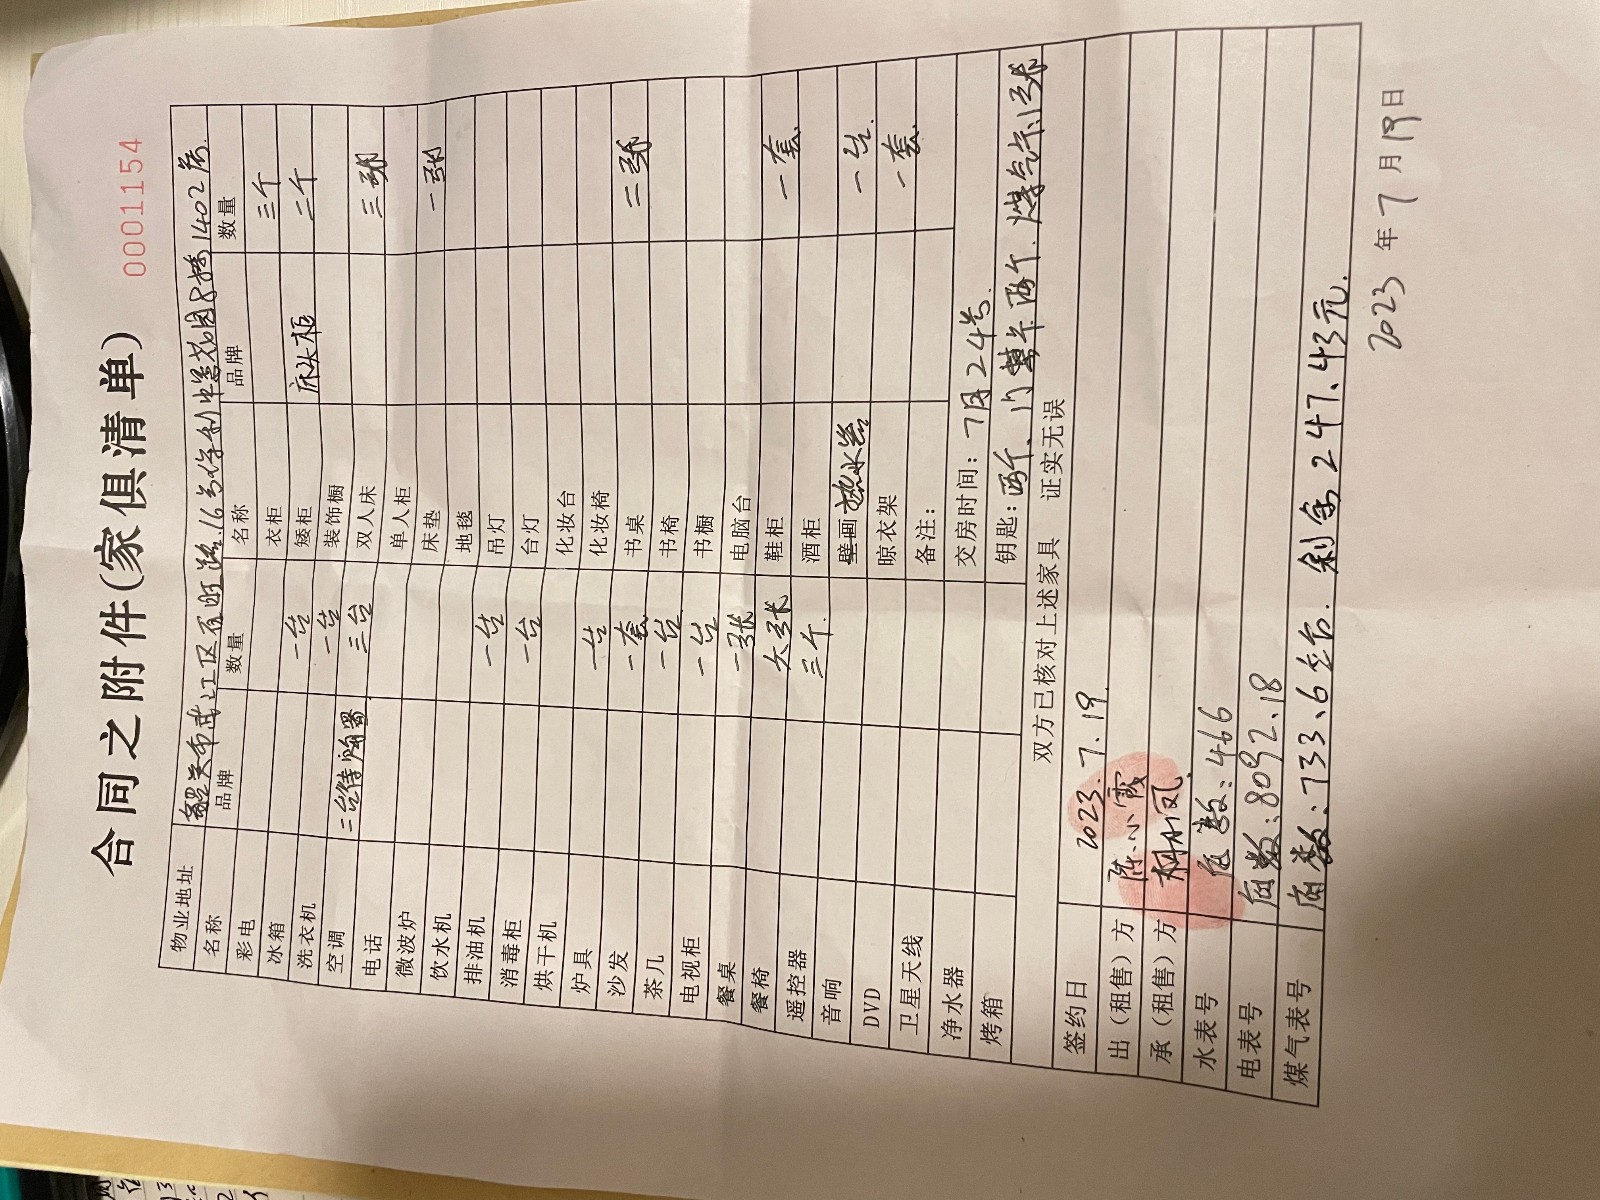 0001154
合同之附件(家俱清单)
物业地址 韶关市武江区百旺路16号保利中景花园8栋1402房
名称 品牌 数量 名称 品牌 数量
彩电 衣柜 三个
冰箱 一台 矮柜 床头柜 二个
洗衣机 一台 装饰橱
空调 三台 双人床 三张
电话 单人柜
微波炉 床垫 一张
饮水机 地毯
排油机 一台 吊灯
消毒柜 一台 台灯
烘干机 化妆台
炉具 一台 化妆椅
沙发 一套 书桌 二张
茶几 一台 书椅
电视柜 一台 书橱
餐桌 一张 电脑台
餐椅 六张 鞋柜 一套
遥控器 三个 酒柜
音响 壁画 热水器 一台
DVD 晾衣架 一套
卫星天线 备注:
净水器 交房时间: 7月24号.
烤箱 钥匙: 两个、门禁卡两个. 煤气卡1张
双方已核对上述家具 证实无误
签约日 2023.7.19.
出(租售)方 陈小霞
承(租售)方
水表号 底数:466
电表号 底数:8092.18
煤气表号 底数:733.6 剩余247.43元.
2023年7月19日